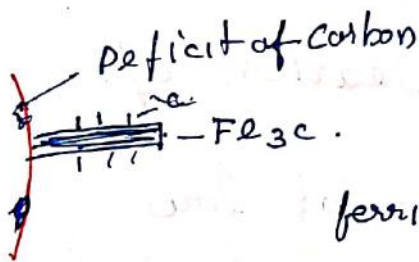 Deficit of Carbon
c
Fe3c.
ferri